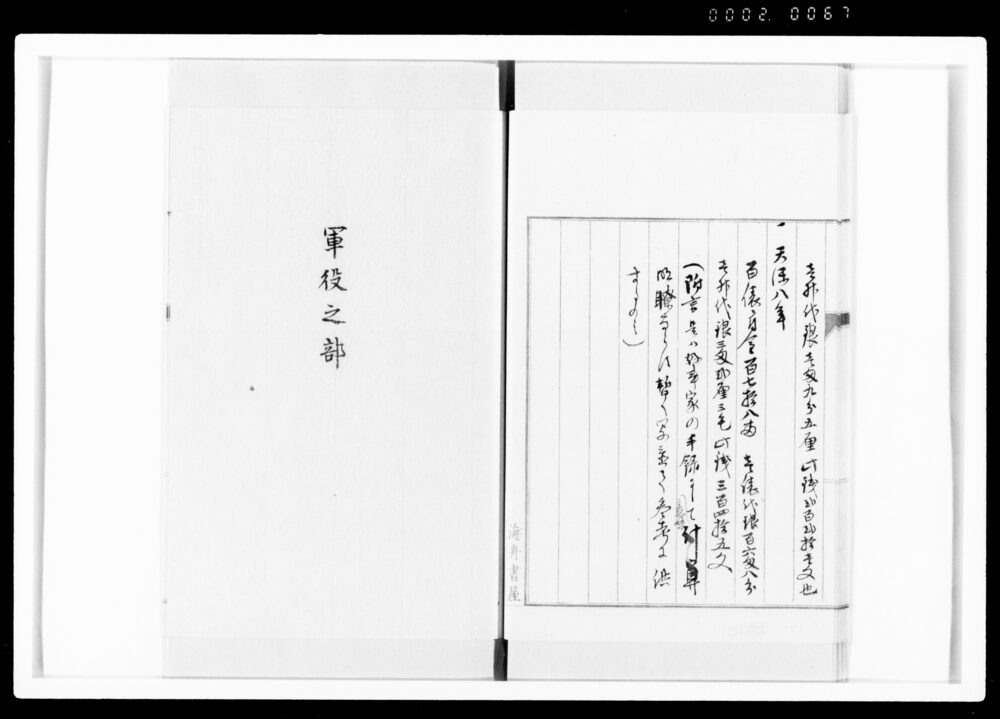 0002 0067
壱升代銀壱匁九分五厘 此銭弐百弐拾壱文也
一 天保八年
百俵ニ付金百七拾八両 壱俵代銀百六匁八分
壱升代銀三匁弐厘三毛 此銭三百四拾五文
(附言 是ハ好事家の手録にして計算
明瞭ならされ 暫く写置て参考に供
するのミ)
海舟書屋
軍役之部